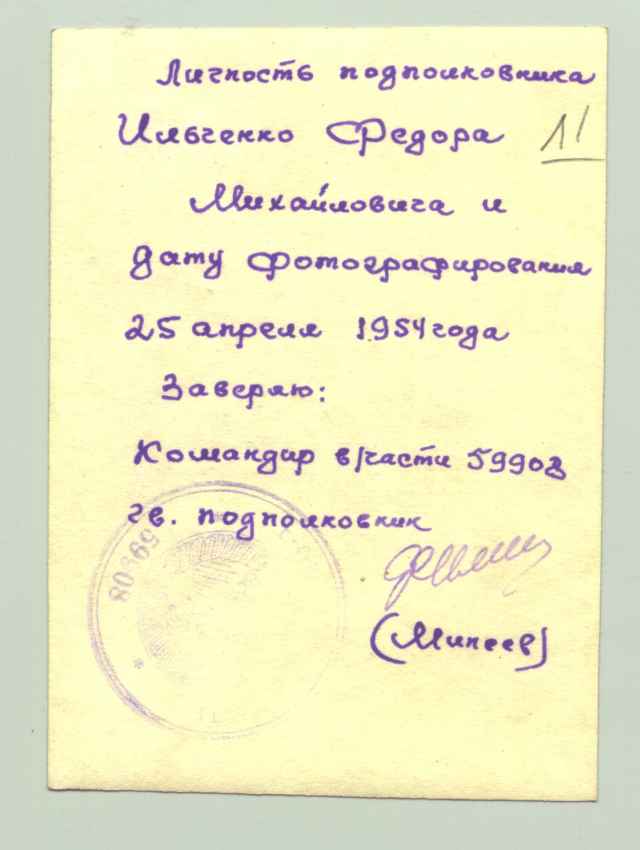 Личность подполковника
Ильченко Федора 11
Михайловича и
дату фотографирования
25 апреля 1954 года
Заверяю:
Командир в/части 59908
гв. подполковник
(Минеев)
59908